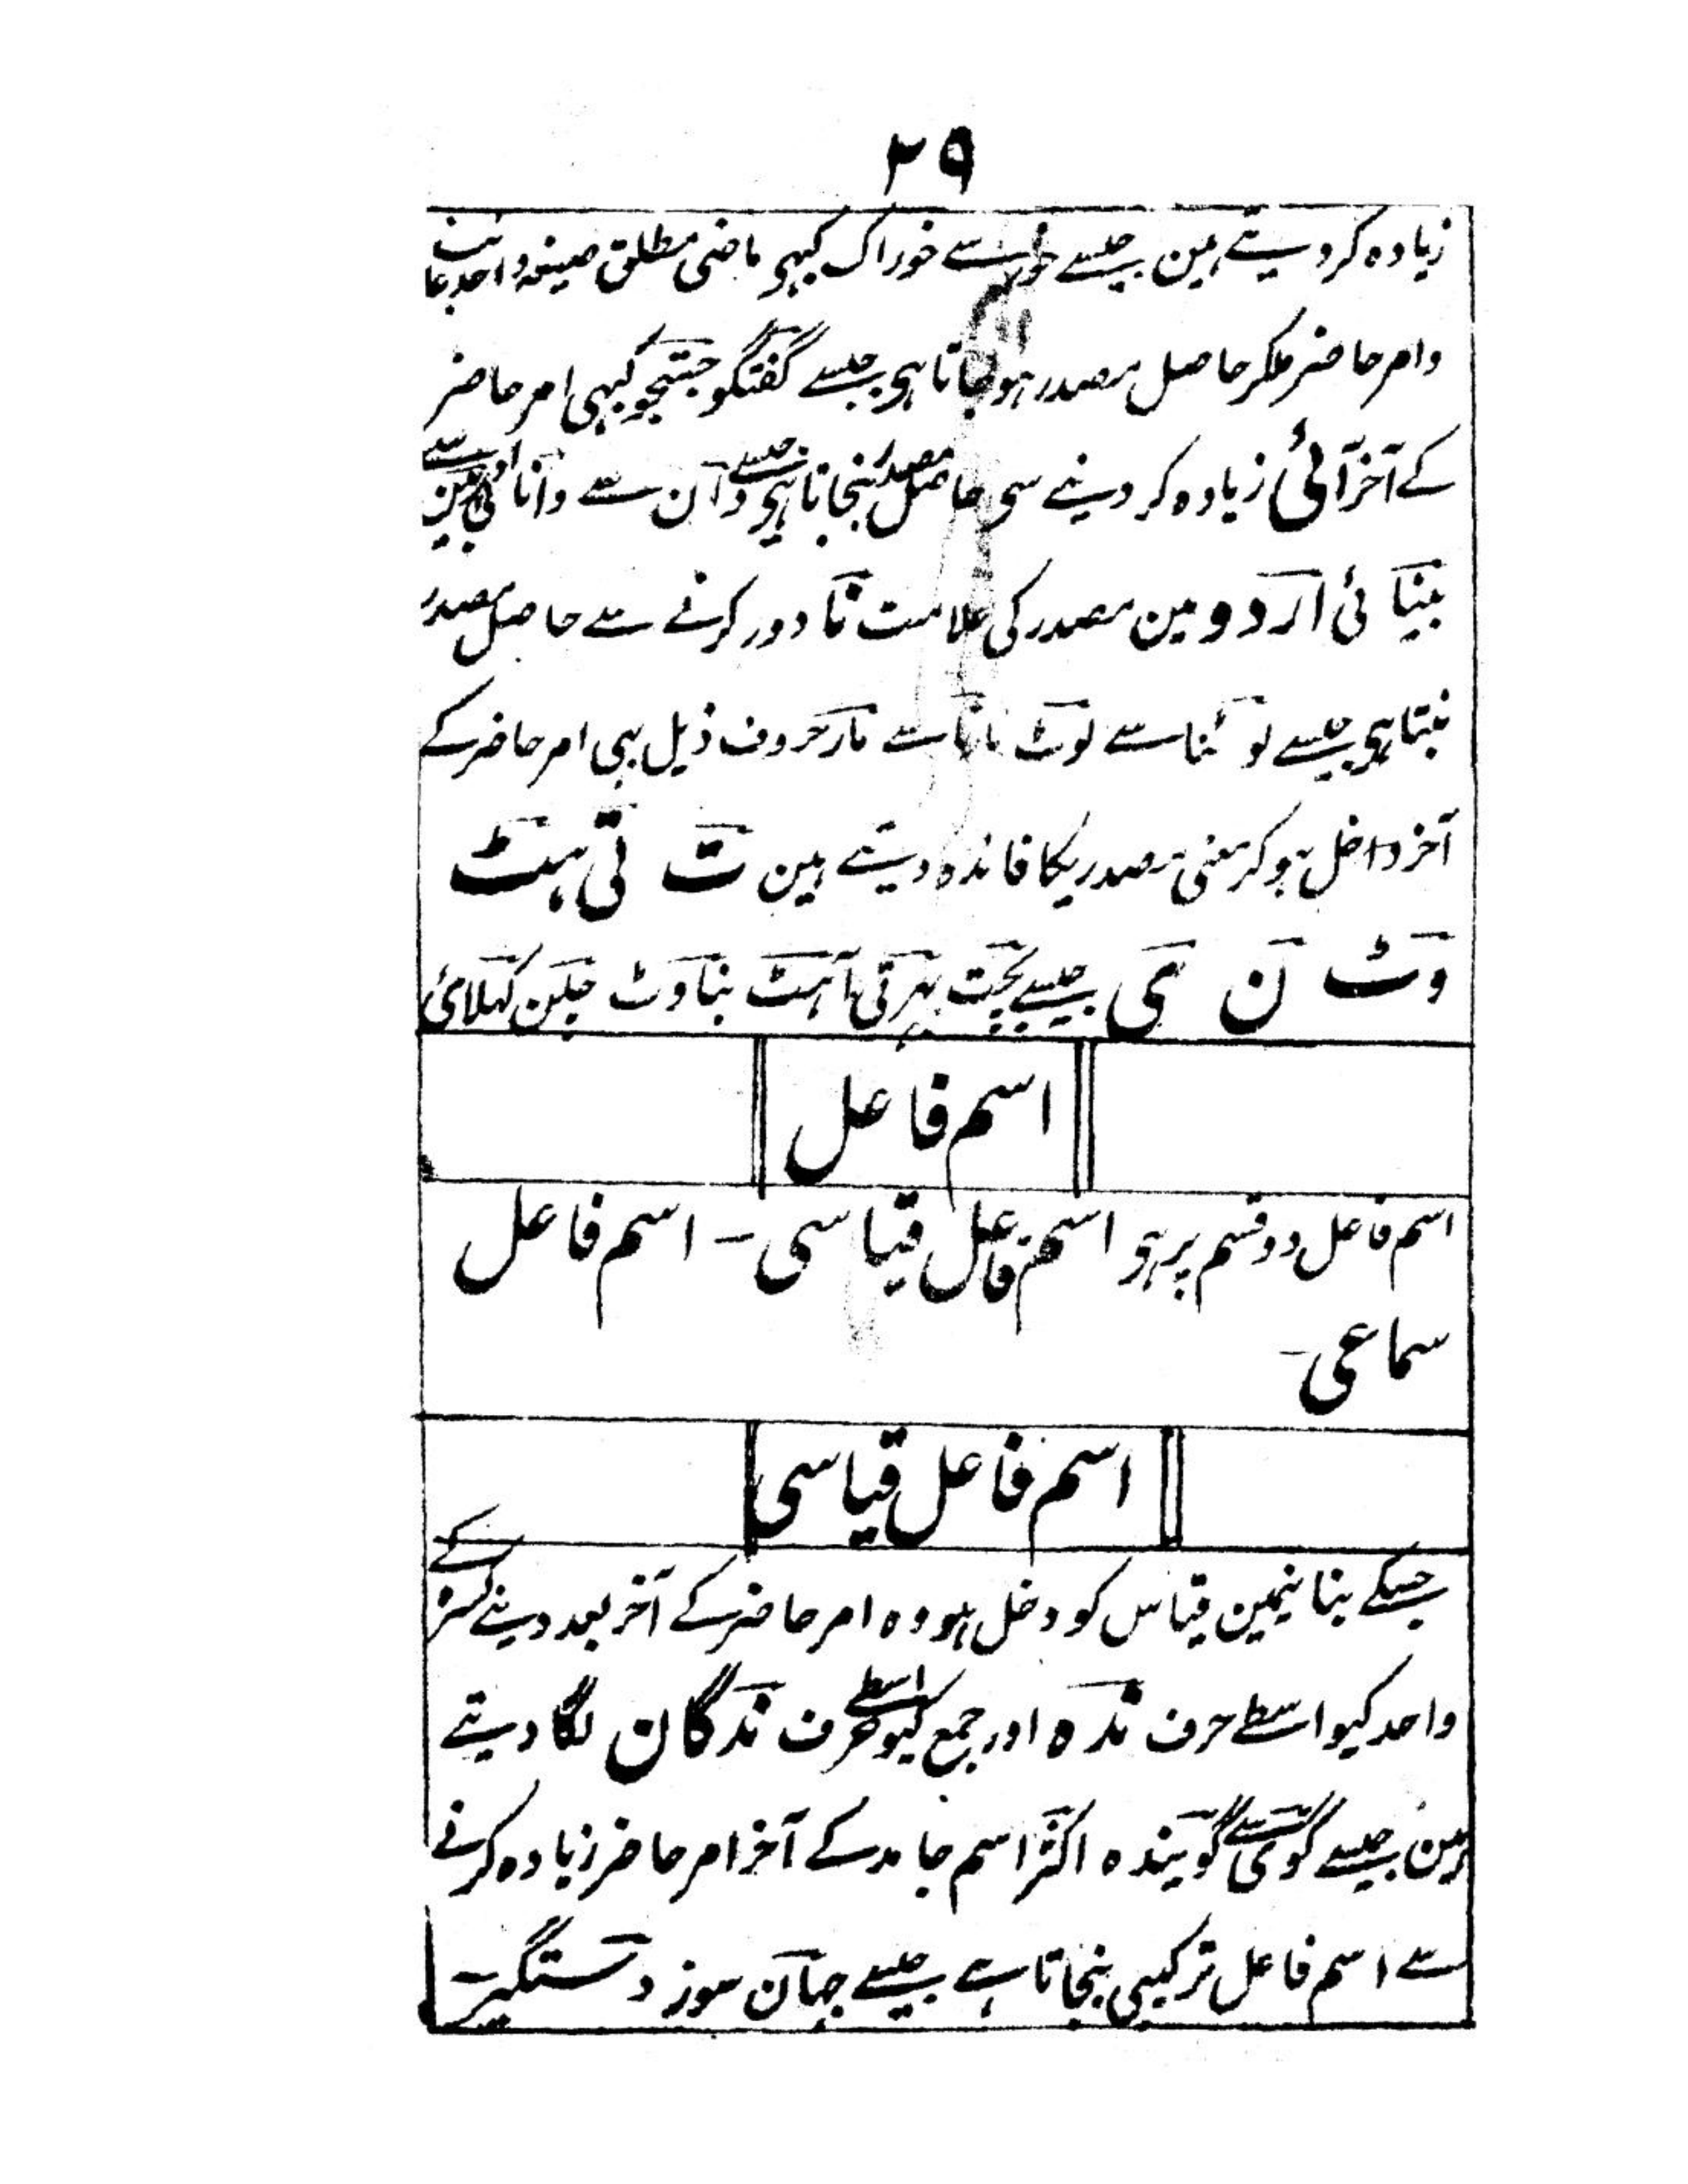 ۲۹
زیادہ کر دیتے ہین جیسے خور سے خوراک کبہی ماضی مطلق صیغہ واحد غائب
و امر حاضر ملکر حاصل مصدر ہو جاتا ہی جیسے گفتگو جستجو کبہی امر حاضر
کے آخر آئی زیادہ کر دینے سی حاصل مصدر بنجاتا ہی جیسے دان سے دانائی بین سے
بینائی اردو مین مصدر کی علامت نا دور کرنے سے حاصل مصدر
بنتا ہی جیسے لوٹنا سے لوٹ مارنا سے مار حروف ذیل بہی امر حاضر کے
آخر داخل ہو کر معنی مصدریکا فائدہ دیتے ہین ت تی ہٹ
وٹ ن ئی جیسے بچت بہرتی آہٹ بناوٹ چلن کہلائی
اسم فاعل
اسم فاعل دو قسم پر ہی اسم فاعل قیاسی - اسم فاعل
سماعی -
اسم فاعل قیاسی
جسکے بنانیمین قیاس کو دخل ہو وہ امر حاضر کے آخر بعد دینے کسرہ کے
واحد کیواسطے حرف ندہ اور جمع کیواسطے حرف ندگان لگا دیتے
ہین جیسے گوی سے گویندہ اکثر اسم جامد کے آخر امر حاضر زیادہ کرنے
سے اسم فاعل ترکیبی بنجاتا ہے جیسے جہان سوز دستگیر -